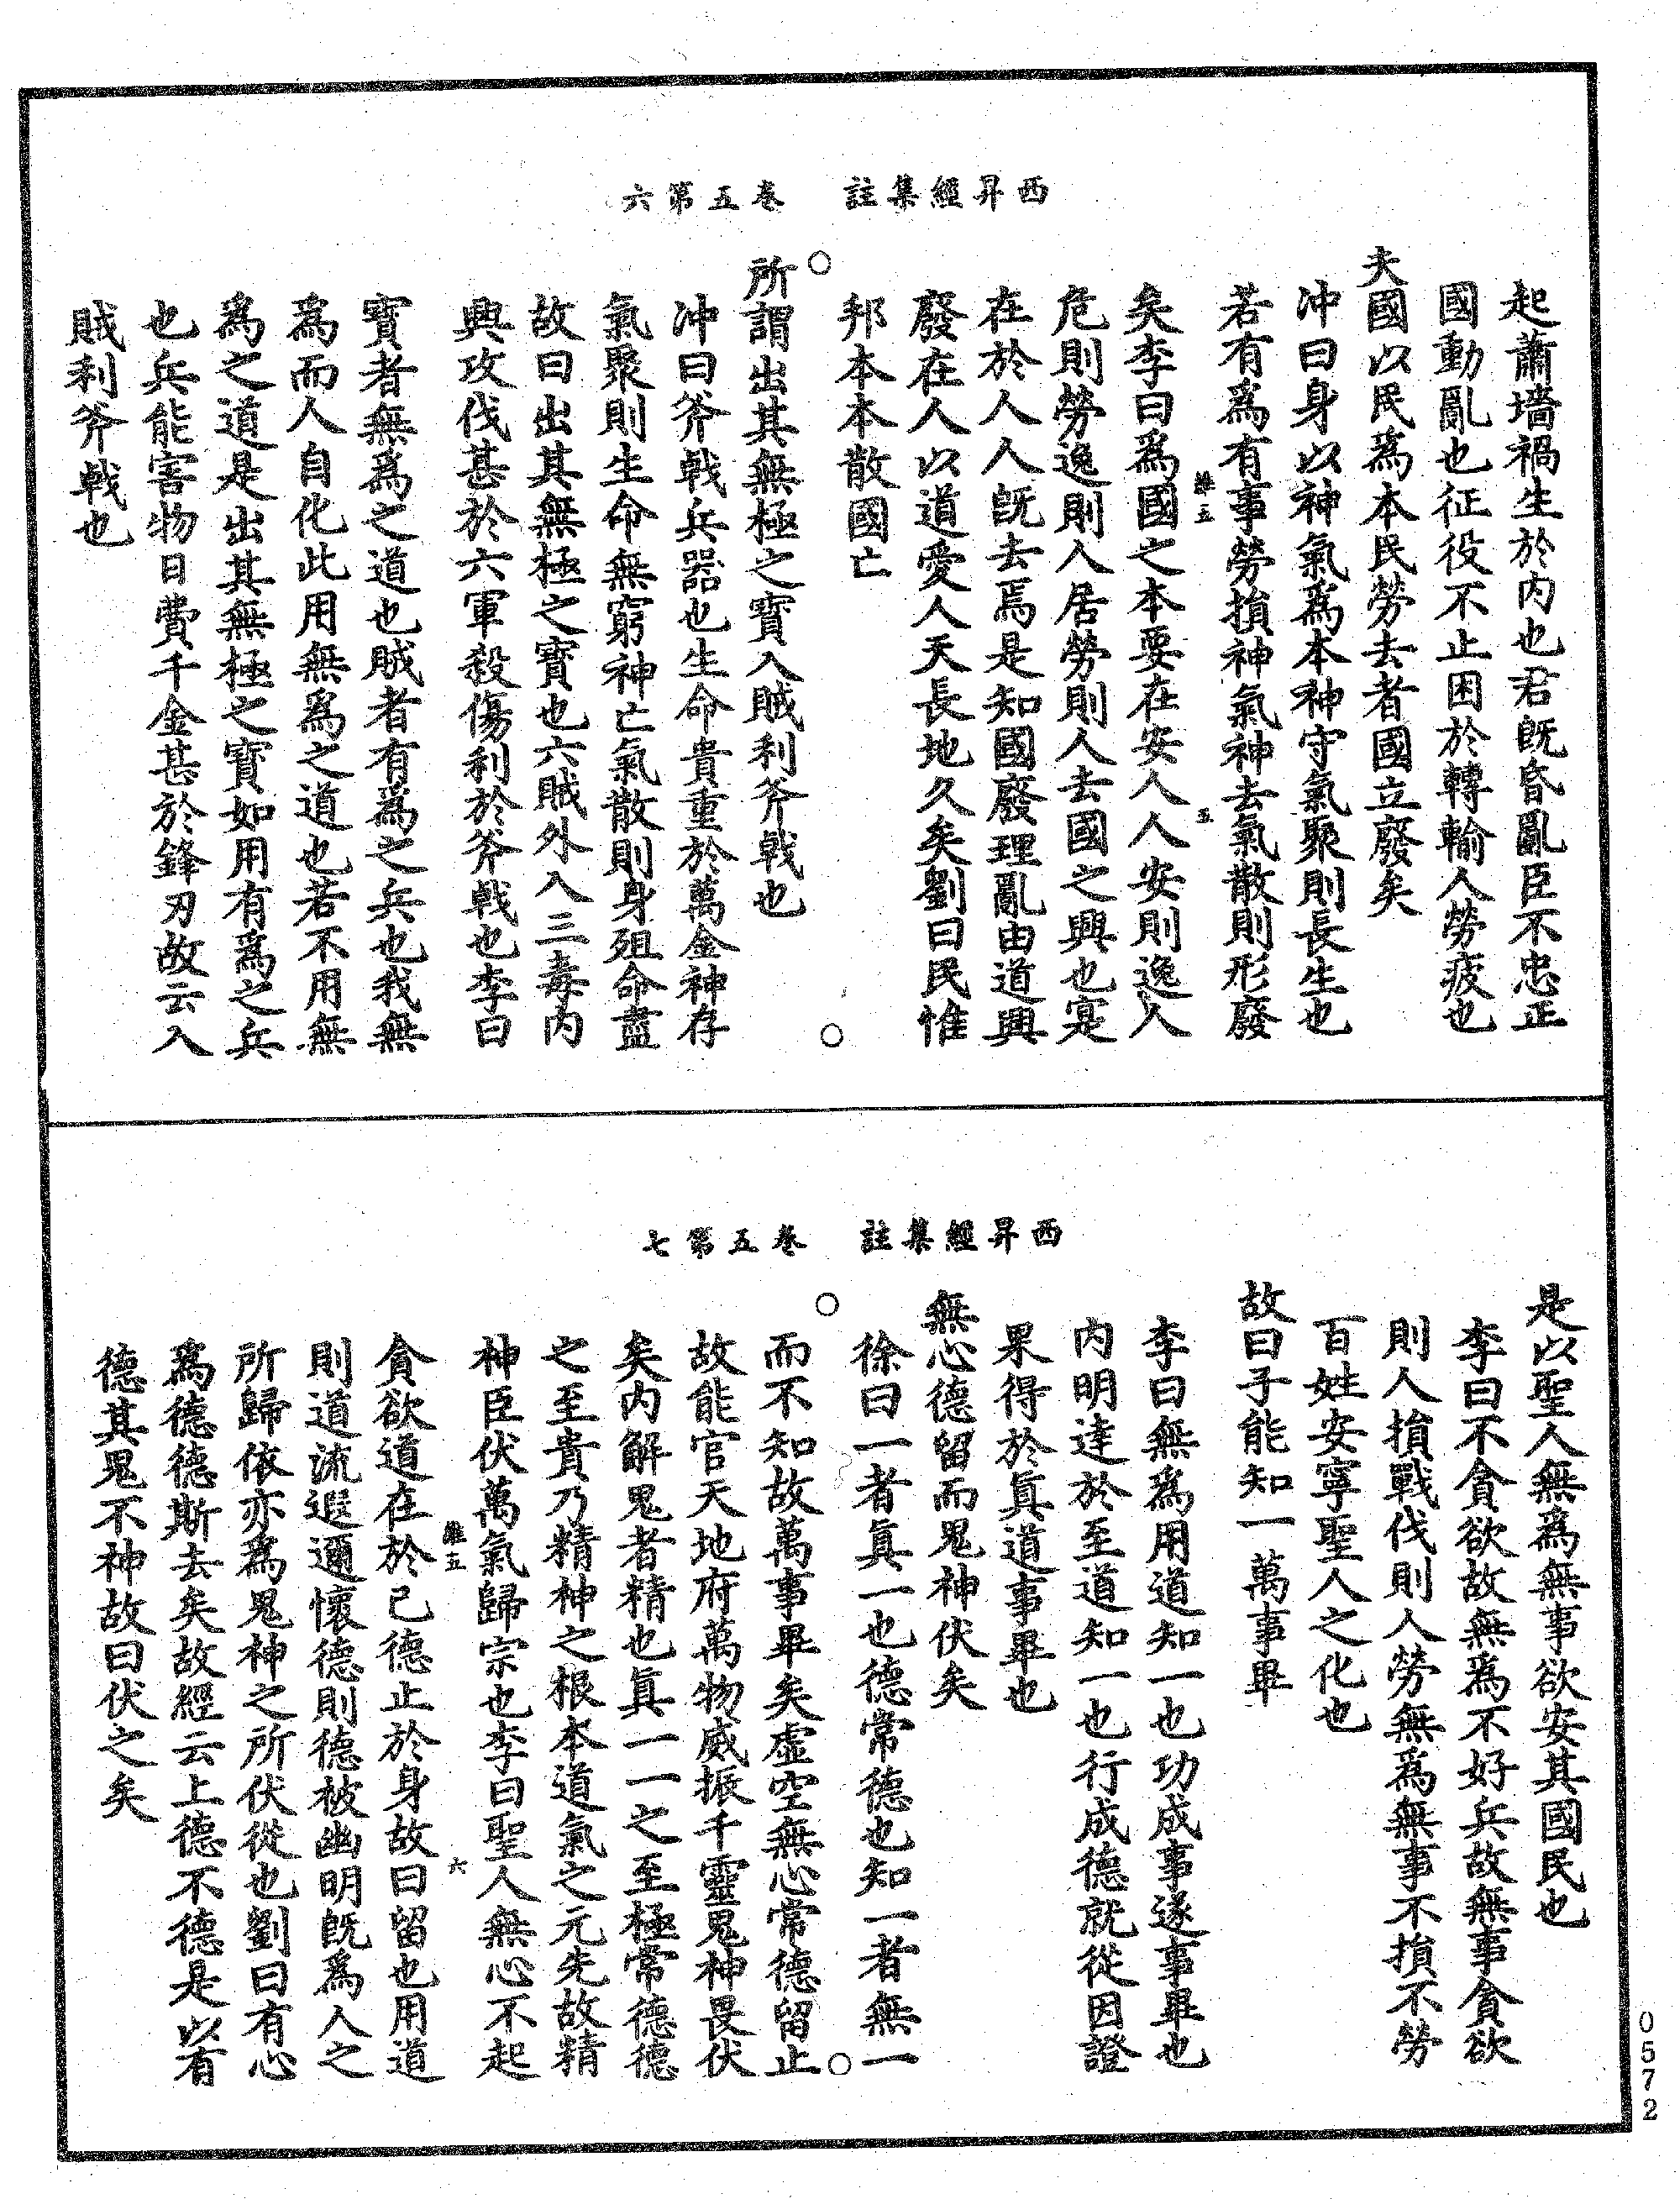 西昇經集註　卷五第六
起蕭墻禍生於内也君旣昏亂臣不忠正
國動亂也征役不止困於轉輸人勞疲也
夫國以民爲本民勞去者國立廢矣
冲曰身以神氣爲本神守氣聚則長生也
若有爲有事勞損神氣神去氣散則形廢
維五　五
矣李曰爲國之本要在安人人安則逸人
危則勞逸則入居勞則人去國之興也寔
在於人人旣去焉是知國廢理亂由道興
廢在人以道愛人天長地久矣劉曰民惟
邦本本散國亡
所謂出其無極之寶入賊利斧戟也
冲曰斧戟兵器也生命貴重於萬金神存
氣聚則生命無窮神亡氣散則身殂命盡
故曰出其無極之寶也六賊外入三毒内
興攻伐甚於六軍殺傷利於斧戟也李曰
寶者無爲之道也賊者有爲之兵也我無
爲而人自化此用無爲之道也若不用無
爲之道是出其無極之寶如用有爲之兵
也兵能害物日費千金甚於鋒刃故云入
賊利斧戟也
西昇經集註　卷五第七
是以聖人無爲無事欲安其國民也
李曰不貪欲故無爲不好兵故無事貪欲
則人損戰伐則人勞無爲無事不損不勞
百姓安寧聖人之化也
故曰子能知一萬事畢
李曰無爲用道知一也功成事遂事畢也
内明達於至道知一也行成德就從因證
果得於眞道事畢也
無心德留而鬼神伏矣
徐曰一者眞一也德常德也知一者無一
而不知故萬事畢矣虛空無心常德留止
故能官天地府萬物威振千靈鬼神畏伏
矣内解鬼者精也眞一一之至極常德德
之至貴乃精神之根本道氣之元先故精
神臣伏萬氣歸宗也李曰聖人無心不起
維五　六
貪欲道在於己德止於身故曰留也用道
則道流遐邇懷德則德被幽明旣爲人之
所歸依亦爲鬼神之所伏從也劉曰有心
爲德德斯去矣故經云上德不德是以有
德其鬼不神故曰伏之矣
0572